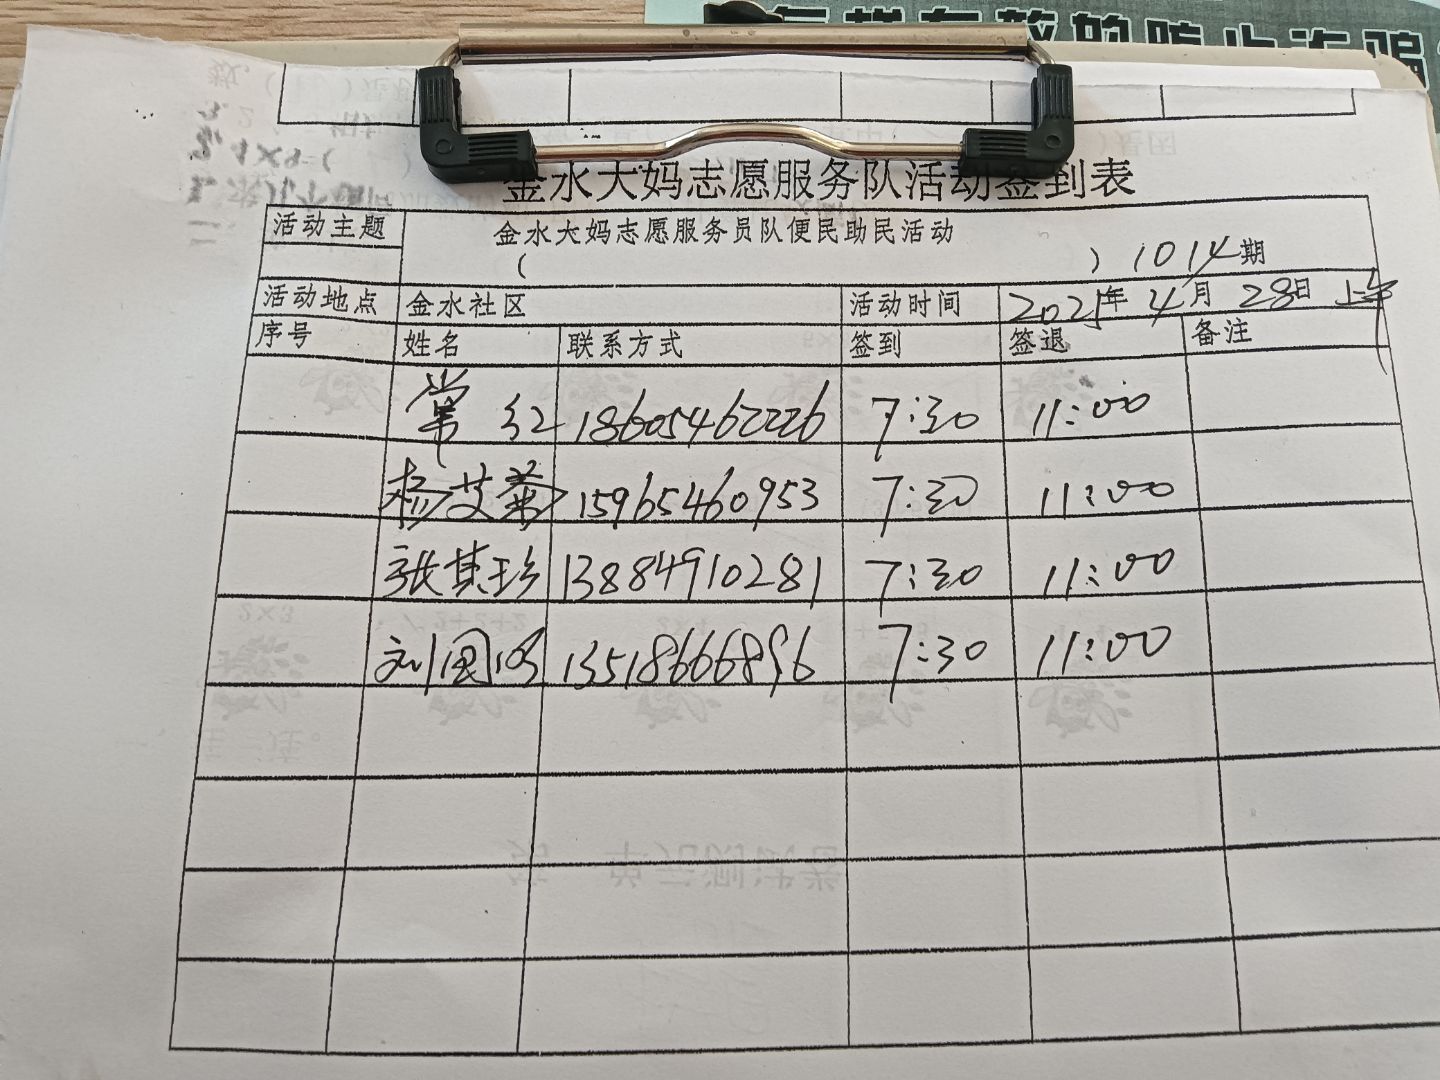 金水大妈志愿服务队活动签到表
活动主题 金水大妈志愿服务员队便民助民活动
( ) 1014期
活动地点 金水社区 活动时间 2025年 4月 28日 上午
序号 姓名 联系方式 签到 签退 备注
常红 18605462226 7:30 11:00
杨艾菊 15965460953 7:30 11:00
张其珍 13884910281 7:30 11:00
刘国 13518666896 7:30 11:00